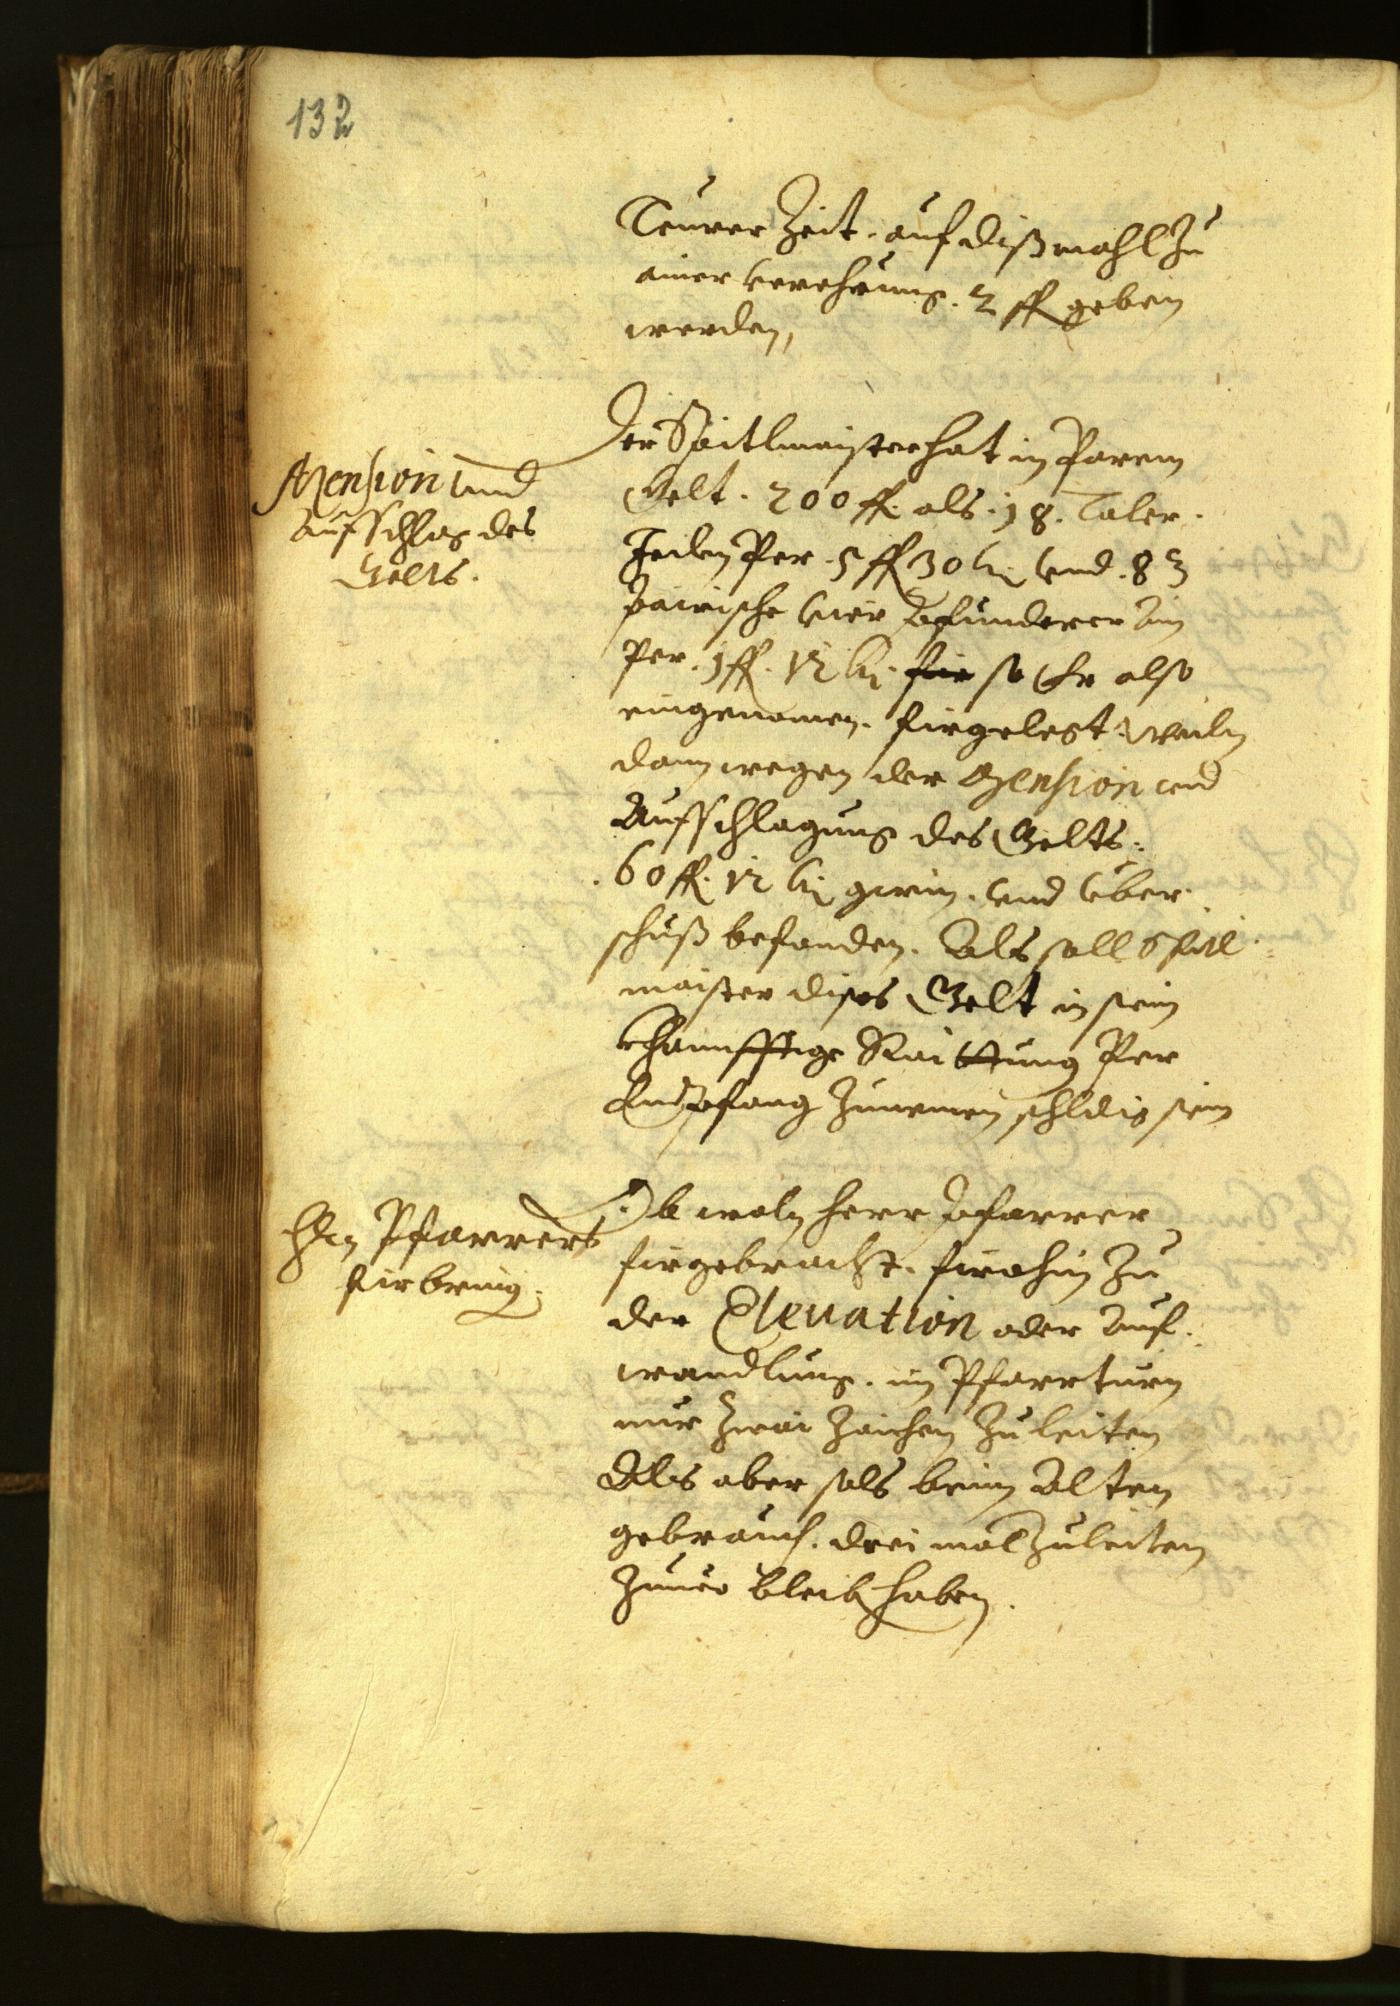 132
Teurer Zeit. auf dißmahl zu
ainer verehrung. 2 fl geben
werden,
Azension und
Aufschlag des
Gelts.
Der Spitlmaister hat in Parem
Gelt. 200 fl. als. 18. Taler.
Jeden Per. 5 fl 30 kr und. 83
pairische vier Pfunderer Ain
Per. 1 fl. 12 kr. für so Er also
eingenomen. firgelegt. Weiln
dann wegen der Azension und
Aufschlagung des Gelts.
.60 fl. 12 kr gwin. und uber.
schuß befonden. Als soll Spitl
maister dises Gelt in sein
khonfftige Raittung Per
Empfang zunemen schldig sein
Hrn Pfarrers
firbring.
Ob woln herr Pfarrer
firgebracht. firohin zu
der Eleuation oder Auf.
wandlung. im Pfarrturn
nur zwai zaichen zu leiten
Als aber sols beim Alten
gebrauch. drei mal zu leiten
zuuer bleib haben.